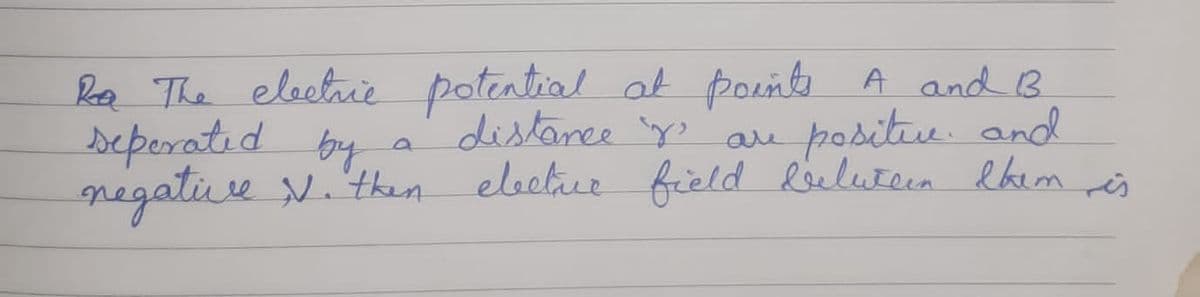 The electric potential at points A and B
seperated by a distance 'r' are positive and
negative V. then electric field between them is